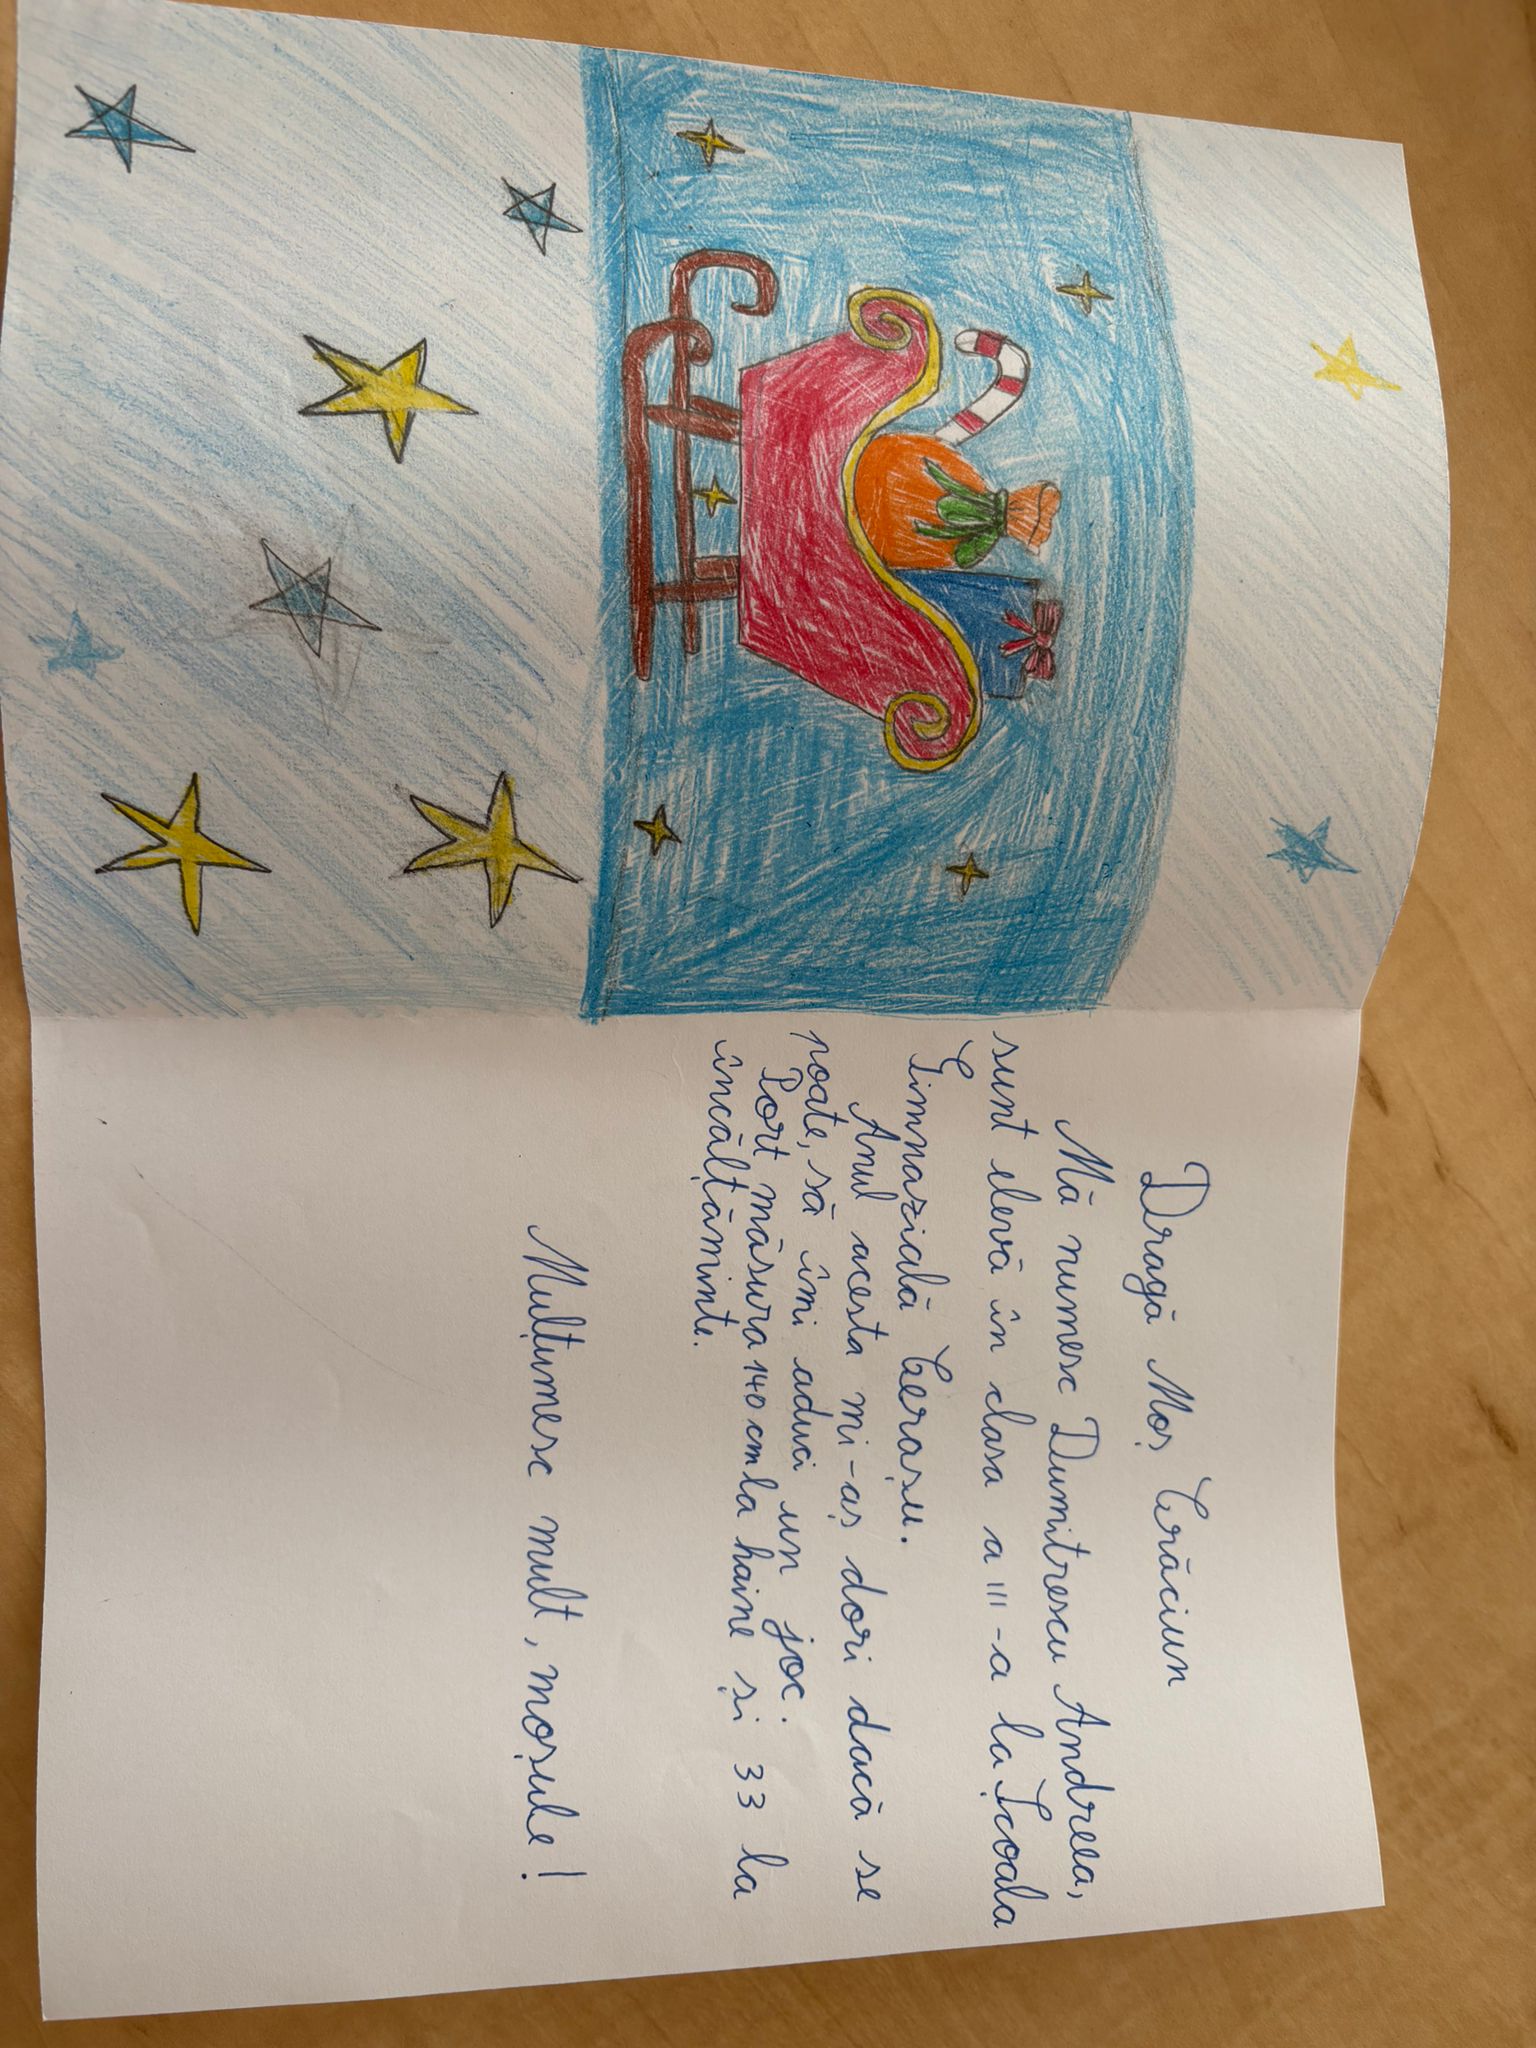 Dragă Moș Crăciun
Mă numesc Dumitrescu Andreea,
sunt elevă în clasa a III-a la Școala
Gimnazială Cerașu.
Anul acesta mi-aș dori dacă se
poate, să îmi aduci un joc.
Port măsura 140 cm la haine și 33 la
încălțăminte.
Mulțumesc mult, moșule!